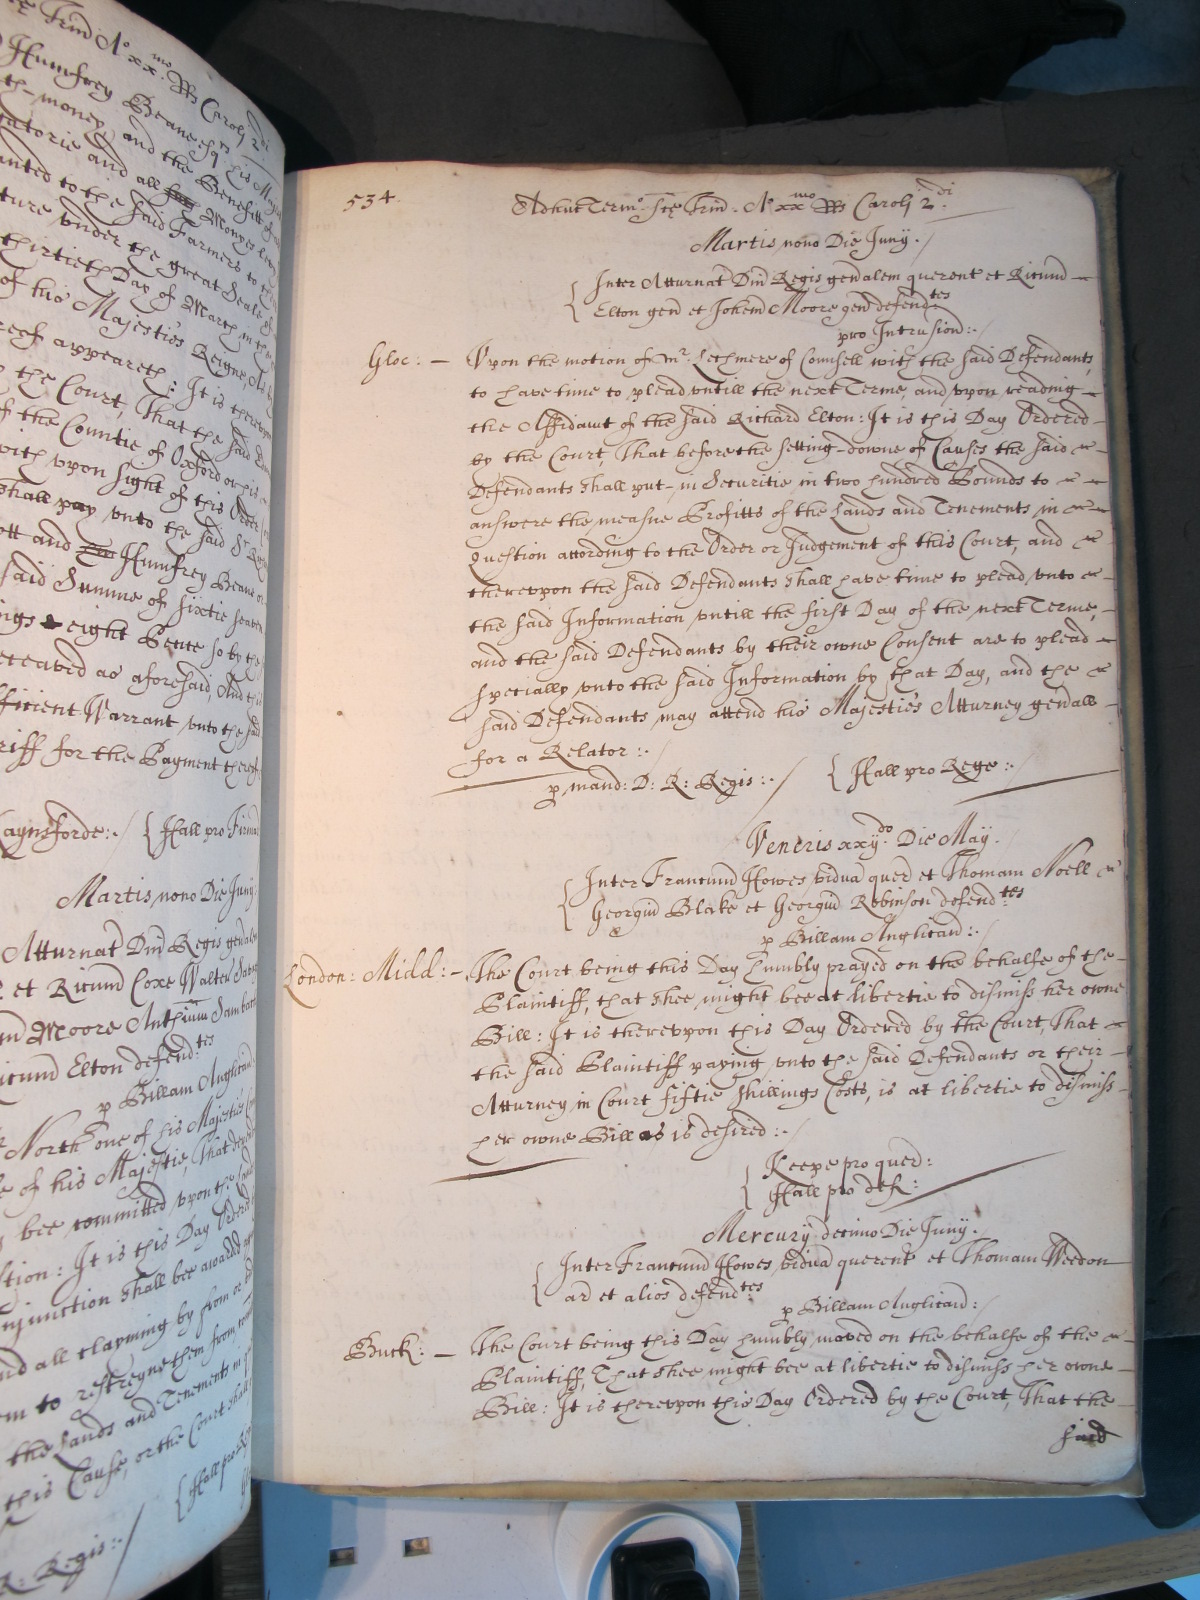 Trin̄ Aº xx.mo Rs Carolj 2di
Humfrey Beane esqrs his
th-money, and the Benefitt
and all Monyes
anted to the said Farmers to
ture vnder the great Seale of
thirtieth Day of March in the
of his Majesties Reigne, As
reof appeareth: It is therevpon
the Court, That the said
f the Countie of Oxford or his
with vpon sight of this Order
shall pay vnto the said Sr
ott and Humfrey Beane or
said Summe of sixtie seaven
ings eight Pence so by the
eceaved as aforesaid, And
fficient Warrant vnto the said
riff for the Payment thereof
aynsforde:./ { Hall pro Firmar
Martis nono Die Junij.
Atturnat Dn̄i Regis gen̄alem
et Ricum Coxe Walter
Moore
icum Elton defend:tes
p Billam Anglican
North one of his Majesties
e of his Majestie, That
bee committed vpon the
tion: It is this Day Ordered
njunction shall bee awarded
nd all clayming by from or
em to restreyne them from
the Lands and Tenements in
this Cause, or the Court shall
{ Hall pro Rege
R: Regis:./
534.
Adhuc Term.º Sc̄e Trin̄. Aº xx.mo Rs Carolj 2.di
Martis nono Die Junij./
{ Inter Atturnat Dn̄i Regis gen̄alem querent et Ricum
Elton gen et Joh̄em Moore gen̄ defendtes
pro Intrusion:./
Gloc: — Vpon the motion of Mr. Lechmere of Counsell with the said Defendants,
to have time to plead vntill the next Terme, and vpon reading
the Affidavit of the said Richard Elton: It is this Day Ordered
by the Court, That before the setting-downe of Causes the said
Defendants shall put-in Securitie in two hundred Pounds to
answere the measne Profitts of the Lands and Tenements in
Question according to the Order or Judgement of this Court, and
therevpon the said Defendants shall have time to plead vnto
the said Information vntill the first Day of the next Terme,
and the said Defendants by their owne Consent are to plead
specially vnto the said Information by that Day, and the
said Defendants may attend his Majesties Atturney gen̄all
for a Relator:./
p mand: D: R: Regis:./ { Hall pro Rege:./
Veneris xxijdo. Die Maij./
{ Inter Francum̄ Howes vidua quer̄ et Thomam Noell
Georgiū Blake et Georgiū Robinson defend:tes
p Billam Anglican̄:./
London: Midd:— The Court being this Day humbly prayed on the behalfe of the
Plaintiff, that shee might bee at libertie to dismiss her owne
Bill: It is therevpon this Day Ordered by the Court, That
the said Plaintiff paying vnto the said Defendants or their
Atturney in Court fiftie shillings Costs, is at libertie to dismiss
her owne Bill as is desired:./
{ Keepe pro quer̄:
Hall pro def:
Mercurij decimo Die Junij./
{ Inter Francum̄ Howes vidua querent et Thomam Weedon
ar et alios defendtes
p Billam Anglican̄:
Buck: — The Court being this Day humbly moved on the behalfe of the
Plaintiff, That shee might bee at libertie to dismiss her owne
Bill: It is therevpon this Day Ordered by the Court, That the
said